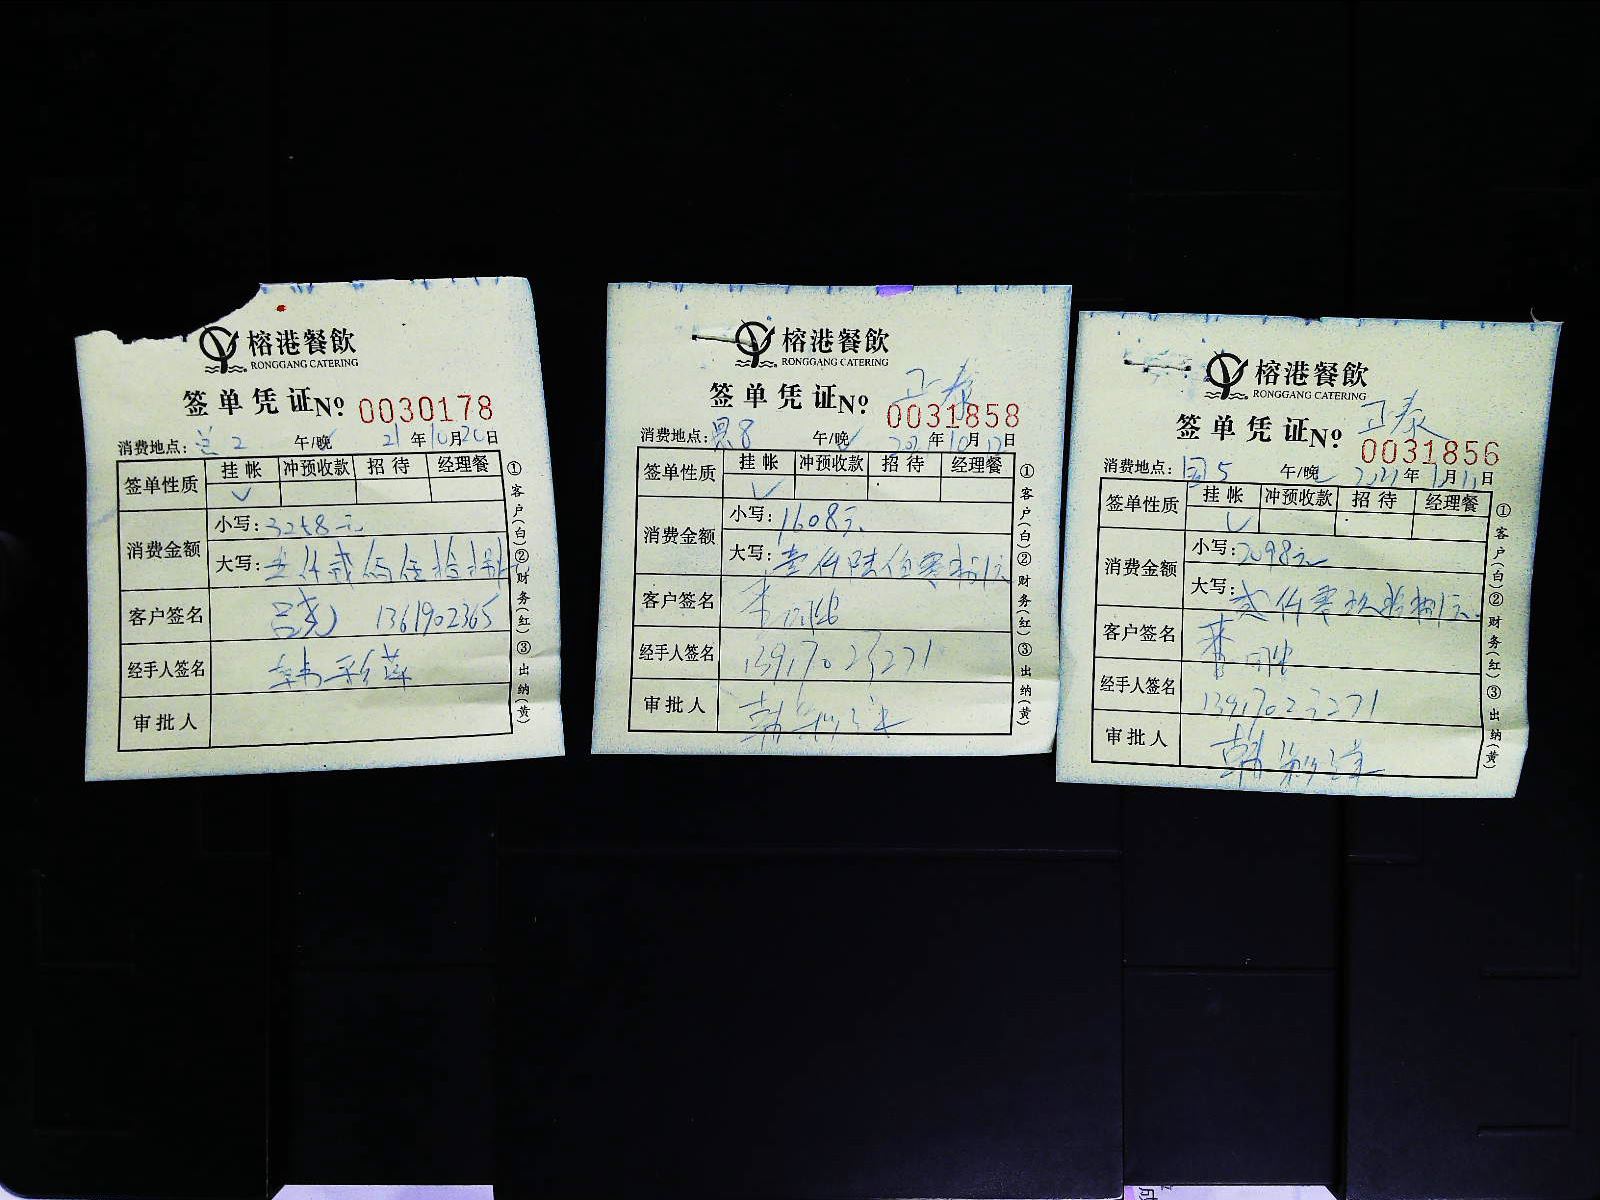 榕港餐飲
RONGGANG CATERING
签单凭证 No 0030178
消费地点: 2 午/晚 21年10月20日
签单性质 挂帐 冲预收款 招待 经理餐
消费金额
小写: 3258元
大写:
客户签名 1361902365
经手人签名
审批人
①客户(白)②财务(红)③出纳(黄)
榕港餐飲
RONGGANG CATERING
正泰
签单凭证 No 0031858
消费地点: 8 午/晚 2021年10月12日
签单性质 挂帐 冲预收款 招待 经理餐
消费金额
小写: 1608元
大写: 壹仟陆佰零捌元
客户签名 李
经手人签名 13917023271
审批人 韩
①客户(白)②财务(红)③出纳(黄)
榕港餐飲
RONGGANG CATERING
正泰
签单凭证 No 0031856
消费地点: 国5 午/晚 2021年10月11日
签单性质 挂帐 冲预收款 招待 经理餐
消费金额
小写: 2098元
大写: 贰仟零玖拾捌元
客户签名 李
经手人签名 13917023271
审批人 韩
①客户(白)②财务(红)③出纳(黄)